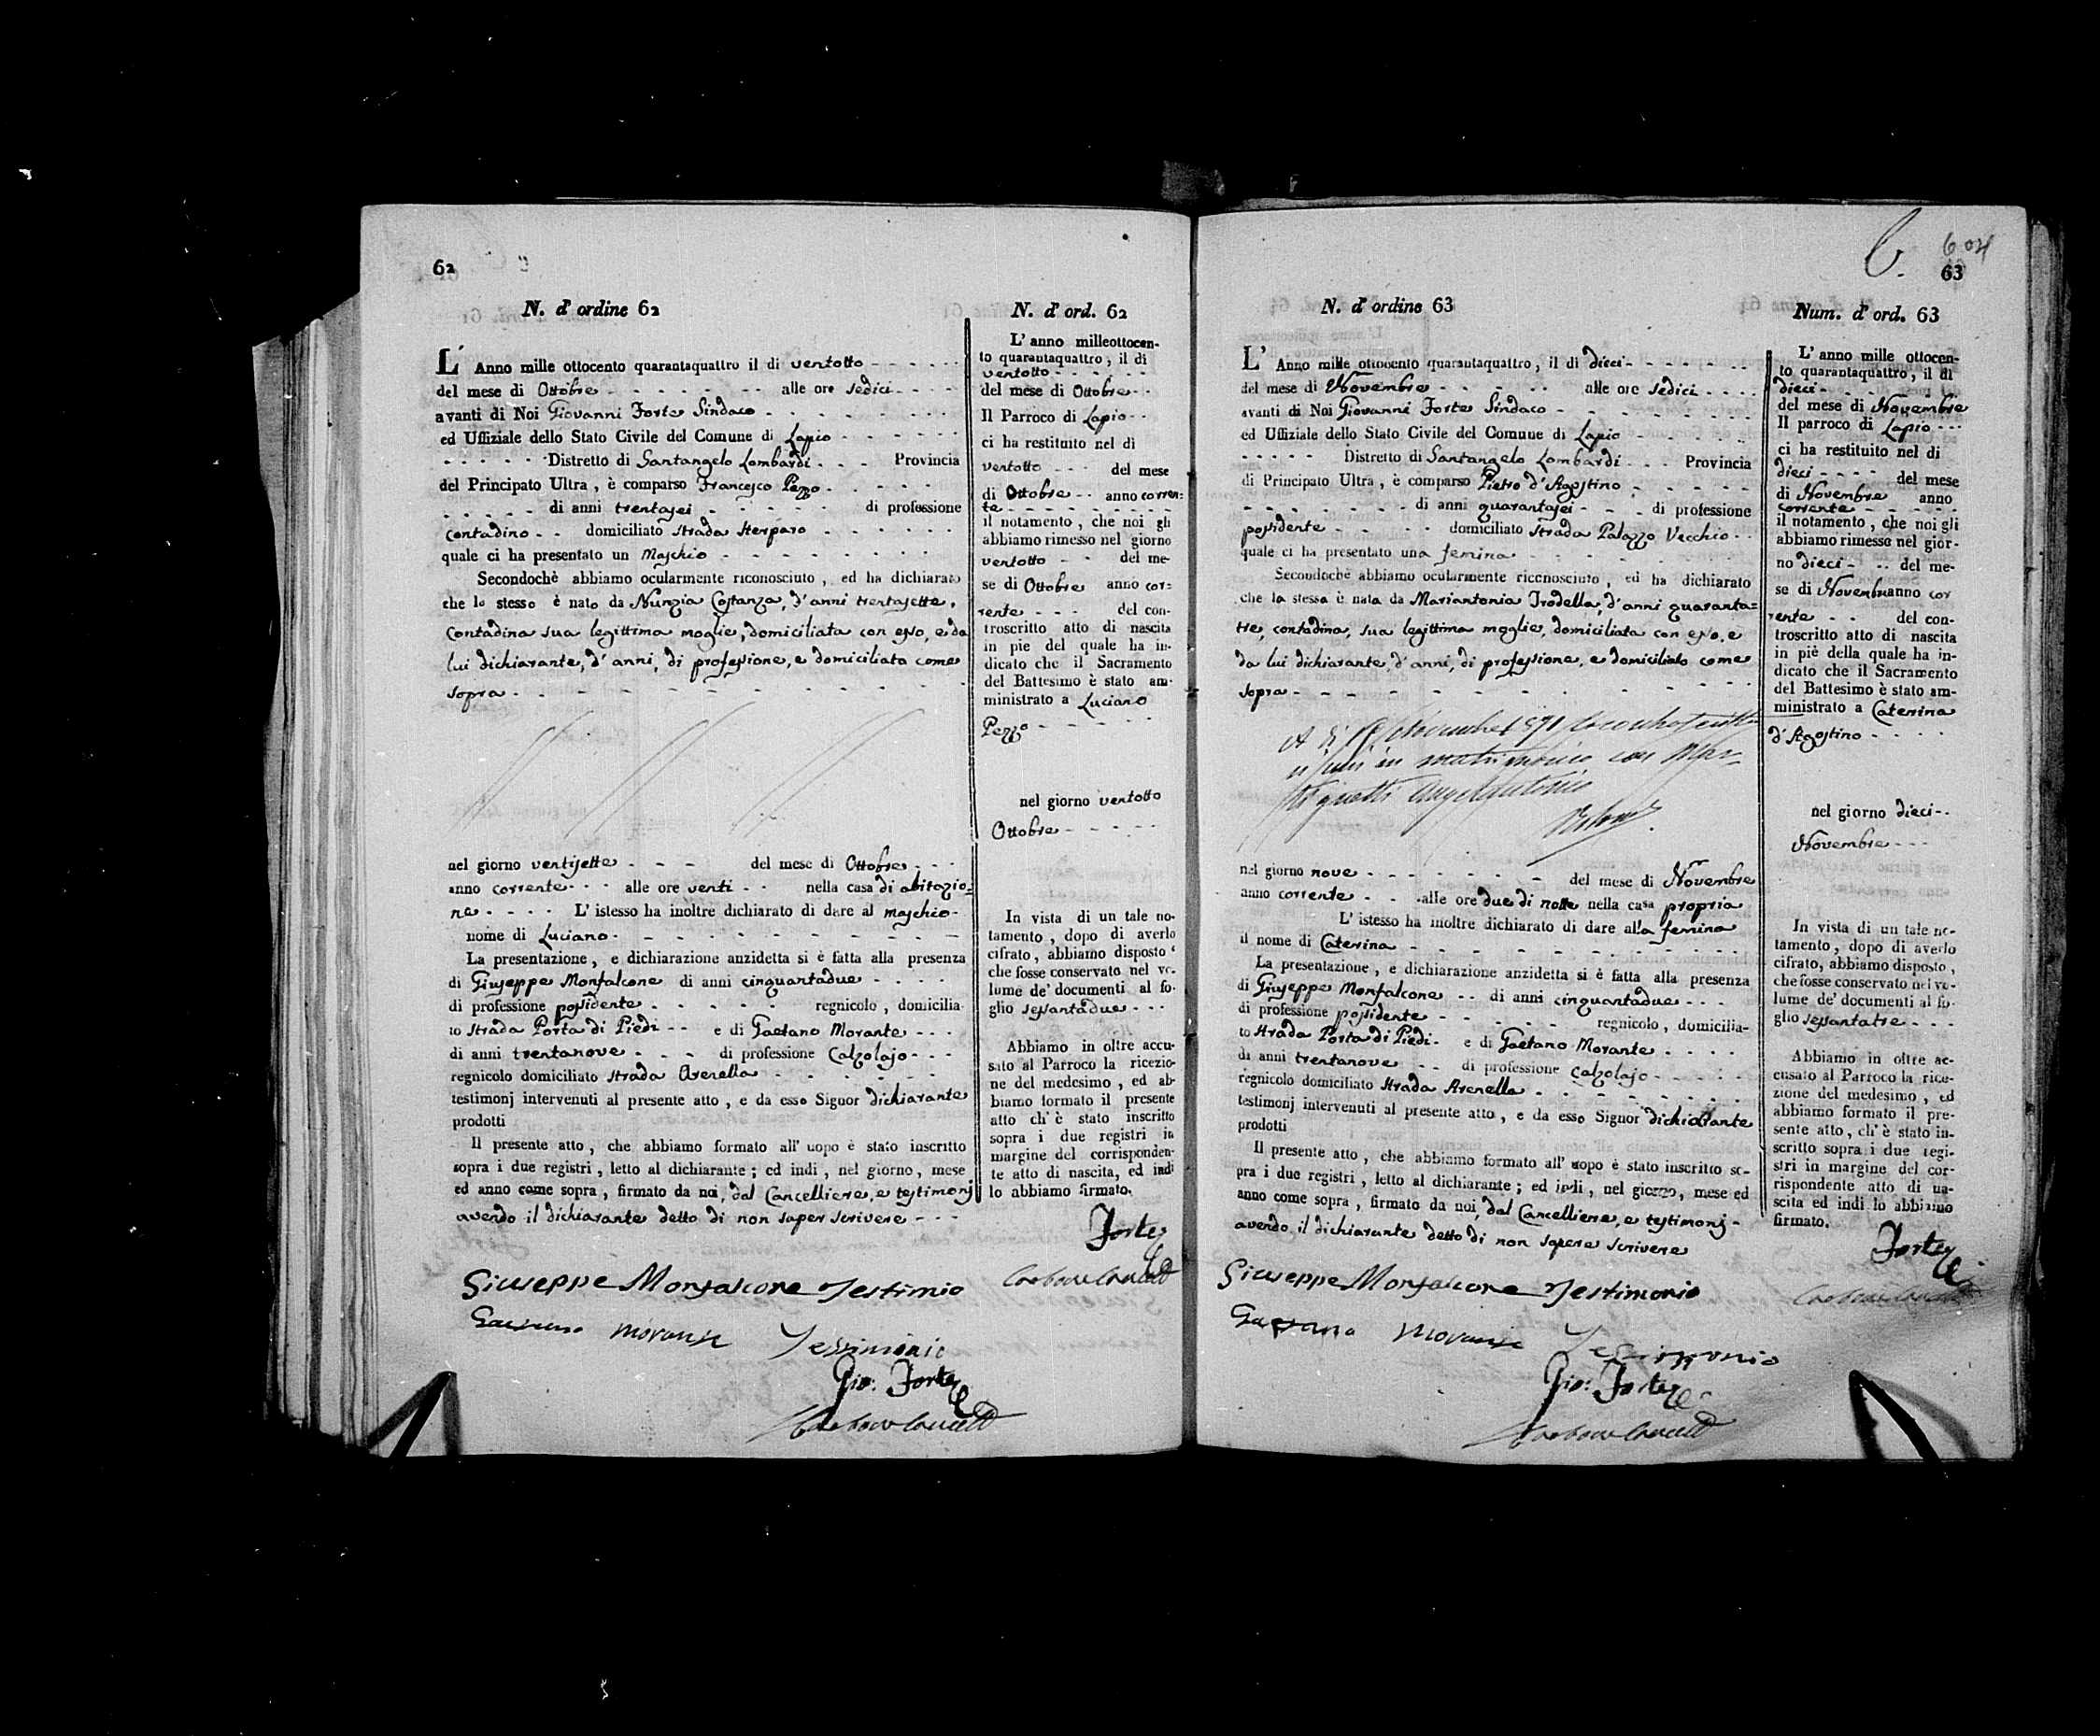 62
N. d' ordine 62
L' Anno mille ottocento quarantaquattro il di ventotto
del mese di Ottobre alle ore sedici
avanti di Noi Giovanni Forte Sindaco
ed Uffiziale dello Stato Civile del Comune di Lapio
Distretto di Santangelo Lombardi Provincia
del Principato Ultra, è comparso Francesco Pezzo
di anni trentasei di professione
contadino domiciliato Strada Sterparo
quale ci ha presentato un Maschio
Secondochè abbiamo ocularmente riconosciuto, ed ha dichiarato
che lo stesso è nato da Nunzia Costanza, d'anni trentasette,
contadina sua legittima moglie, domiciliata con esso, e da
lui dichiarante, d'anni, di professione, e domiciliata come
sopra
nel giorno ventisette del mese di Ottobre
anno corrente alle ore venti nella casa di abitazio=
ne L' istesso ha inoltre dichiarato di dare al maschio
nome di Luciano
La presentazione, e dichiarazione anzidetta si è fatta alla presenza
di Giuseppe Monfalcone di anni cinquantadue
di professione possidente regnicolo, domicilia-
to Strada Porta di Piedi e di Gaetano Morante
di anni trentanove di professione Calzolajo
regnicolo domiciliato Strada Arenella
testimonj intervenuti al presente atto, e da esso Signor dichiarante
prodotti
Il presente atto, che abbiamo formato all' uopo è stato inscritto
sopra i due registri, letto al dichiarante; ed indi, nel giorno, mese
ed anno come sopra, firmato da noi, dal Cancelliere, e testimonj
avendo il dichiarante detto di non saper scrivere
Giuseppe Monfalcone Testimio
Gaetano Morante Testimonio
Gio: Forte
N. d' ord. 62
L' anno milleottocen-
to quarantaquattro, il di
ventotto
del mese di Ottobre
Il Parroco di Lapio
ci ha restituito nel dì
ventotto del mese
di Ottobre anno corren=
te
il notamento, che noi gli
abbiamo rimesso nel giorno
ventotto del me-
se di Ottobre anno cor=
rente del con-
troscritto atto di nascita
in pie del quale ha in-
dicato che il Sacramento
del Battesimo è stato am-
ministrato a Luciano
Pezzo
nel giorno ventotto
Ottobre
In vista di un tale no-
tamento, dopo di averlo
cifrato, abbiamo disposto
che fosse conservato nel vo-
lume de' documenti al fo-
glio sessantadue
Abbiamo in oltre accu-
sato al Parroco la ricezio-
ne del medesimo, ed ab-
biamo formato il presente
atto ch' è stato inscritto
sopra i due registri in
margine del corrisponden-
te atto di nascita, ed indi
lo abbiamo firmato.
Forte
63
N. d' ordine 63
L' Anno mille ottocento quarantaquattro, il di dieci
del mese di Novembre alle ore sedici
avanti di Noi Giovanni Forte Sindaco
ed Uffiziale dello Stato Civile del Comune di Lapio
Distretto di Santangelo Lombardi Provincia
di Principato Ultra, è comparso Pietro d'Agostino
di anni quarantasei di professione
possidente domiciliato Strada Palazzo Vecchio
quale ci ha presentato una femina
Secondochè abbiamo ocularmente riconosciuto, ed ha dichiarato
che la stessa è nata da Mariantonia Trodella, d'anni quaranta=
tre, contadina, sua legittima moglie, domiciliata con esso, e
da lui dichiarante, d'anni, di professione, e domiciliato come
sopra
in matrimonio con
Angelantonio
nel giorno nove del mese di Novembre
anno corrente alle ore due di notte nella casa propria
L' istesso ha inoltre dichiarato di dare alla femina
il nome di Caterina
La presentazione, e dichiarazione anzidetta si è fatta alla presenza
di Giuseppe Monfalcone di anni cinquantadue
di professione possidente regnicolo, domicilia-
to Strada Porta di Piedi e di Gaetano Morante
di anni trentanove di professione Calzolajo
regnicolo domiciliato Strada Arenella
testimonj intervenuti al presente atto, e da esso Signor dichiarante
prodotti
Il presente atto, che abbiamo formato all' uopo è stato inscritto so-
pra i due registri, letto al dichiarante; ed indi, nel giorno, mese ed
anno come sopra, firmato da noi, dal Cancelliere, e testimonj
avendo il dichiarante detto di non sapere scrivere
Giuseppe Monfalcone Testimonio
Gaetano Morante Testimonio
Gio: Forte
Num. d' ord. 63
L' anno mille ottocen-
to quarantaquattro, il di
dieci
del mese di Novembre
Il parroco di Lapio
ci ha restituito nel di
dieci del mese
di Novembre anno
corrente
il notamento, che noi gli
abbiamo rimesso nel gior-
no dieci del me-
se di Novembre anno cor
rente del con-
troscritto atto di nascita
in piè della quale ha in-
dicato che il Sacramento
del Battesimo è stato am-
ministrato a Caterina
d'Agostino
nel giorno dieci
Novembre
In vista di un tale no-
tamento, dopo di averlo
cifrato, abbiamo disposto,
che fosse conservato nel vo-
lume de' documenti al fo-
glio sessantatre
Abbiamo in oltre ac-
cusato al Parroco la rice-
zione del medesimo, ed
abbiamo formato il pre-
sente atto, ch' è stato in-
scritto sopra i due regi-
stri in margine del cor-
rispondente atto di na-
scita ed indi lo abbiamo
firmato.
Forte